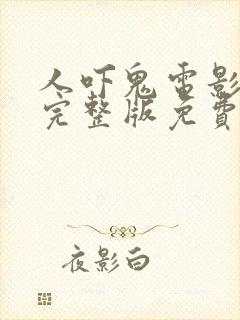 人吓鬼电影
完整版免费
夜影白